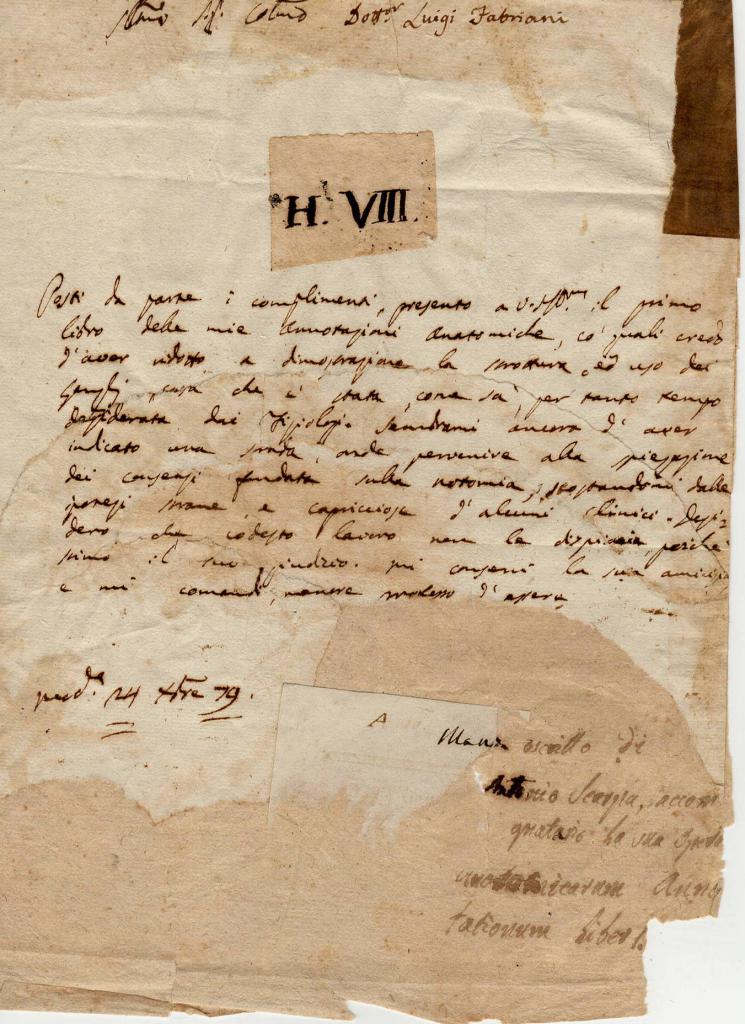 Dott.or Luigi Fabriani
H. VIII.
Posti da parte i complimenti, presento a il primo
libro delle mie Annotazioni Anatomiche, co' quali credo
d'aver ridotto a dimostrazione la struttura, ed uso dei
Ganglj, cosa che è stata, come sà, per tanto tempo
desiderata dai Fisiologi. Sembrami ancora d'aver
indicato una strada, onde pervenire alla spiegazione
dei consensi fondata sulla notomia, scostandomi dalle
ipotesi strane, e capricciose d'alcuni Clinici. Desi-
dero che codesto lavoro non le dispiaccia, poichè
stimo il suo giudizio. mi conservi la sua amicizia
e mi comandi, mentre d'essere
24 Xbre 79.
A
Manoscritto di
Antonio Scarpa, accom
gnatario la sua Opera
anatomicarum Anno
tationum Liber